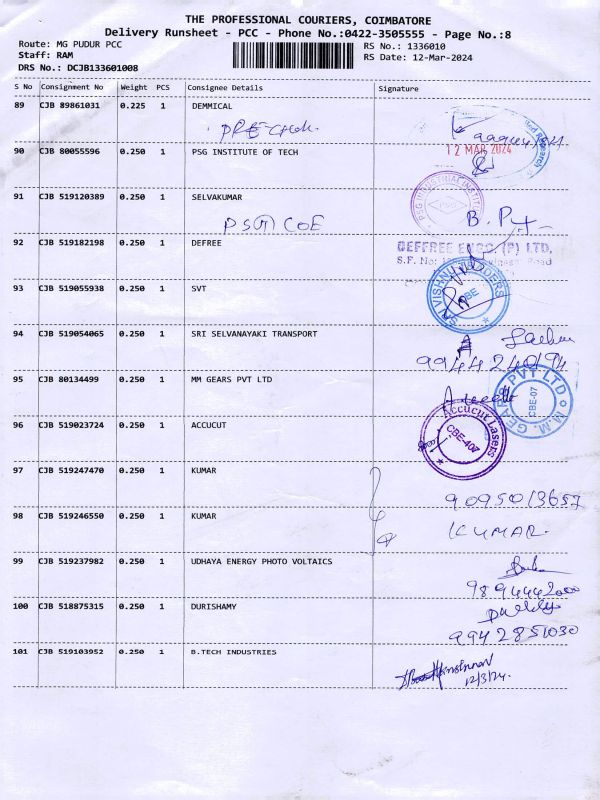 THE PROFESSIONAL COURIERS, COIMBATORE
Delivery Runsheet - PCC - Phone No.:0422-3505555 - Page No.:8
Route: MG PUDUR PCC
RS No.: 1336010
Staff: RAM
RS Date: 12-Mar-2024
DRS No.: DCJB133601008
S No Consignment No Weight PCS Consignee Details Signature
89 CJB 89861031 0.225 1 DEMMICAL
90 CJB 80055596 0.250 1 PSG INSTITUTE OF TECH
12 MAR 2024
91 CJB 519120389 0.250 1 SELVAKUMAR
PSG COE
PSG INDUSTRIAL INSTITUTE
92 CJB 519182198 0.250 1 DEFREE
DEFFREE ENGG. (P) LTD,
S.F. No: Road
93 CJB 519055938 0.250 1 SVT
SRI VISHNU TRADERS
CBE
94 CJB 519054065 0.250 1 SRI SELVANAYAKI TRANSPORT
9944240194
95 CJB 80134499 0.250 1 MM GEARS PVT LTD
M.M. GEARS PVT LTD
CBE-07
96 CJB 519023724 0.250 1 ACCUCUT
Accucut Lasers
CBE-407
97 CJB 519247470 0.250 1 KUMAR
9095013657
98 CJB 519246550 0.250 1 KUMAR
KUMAR
99 CJB 519237982 0.250 1 UDHAYA ENERGY PHOTO VOLTAICS
9894442000
100 CJB 518875315 0.250 1 DURISHAMY
9942851030
101 CJB 519103952 0.250 1 B.TECH INDUSTRIES
12/3/24.